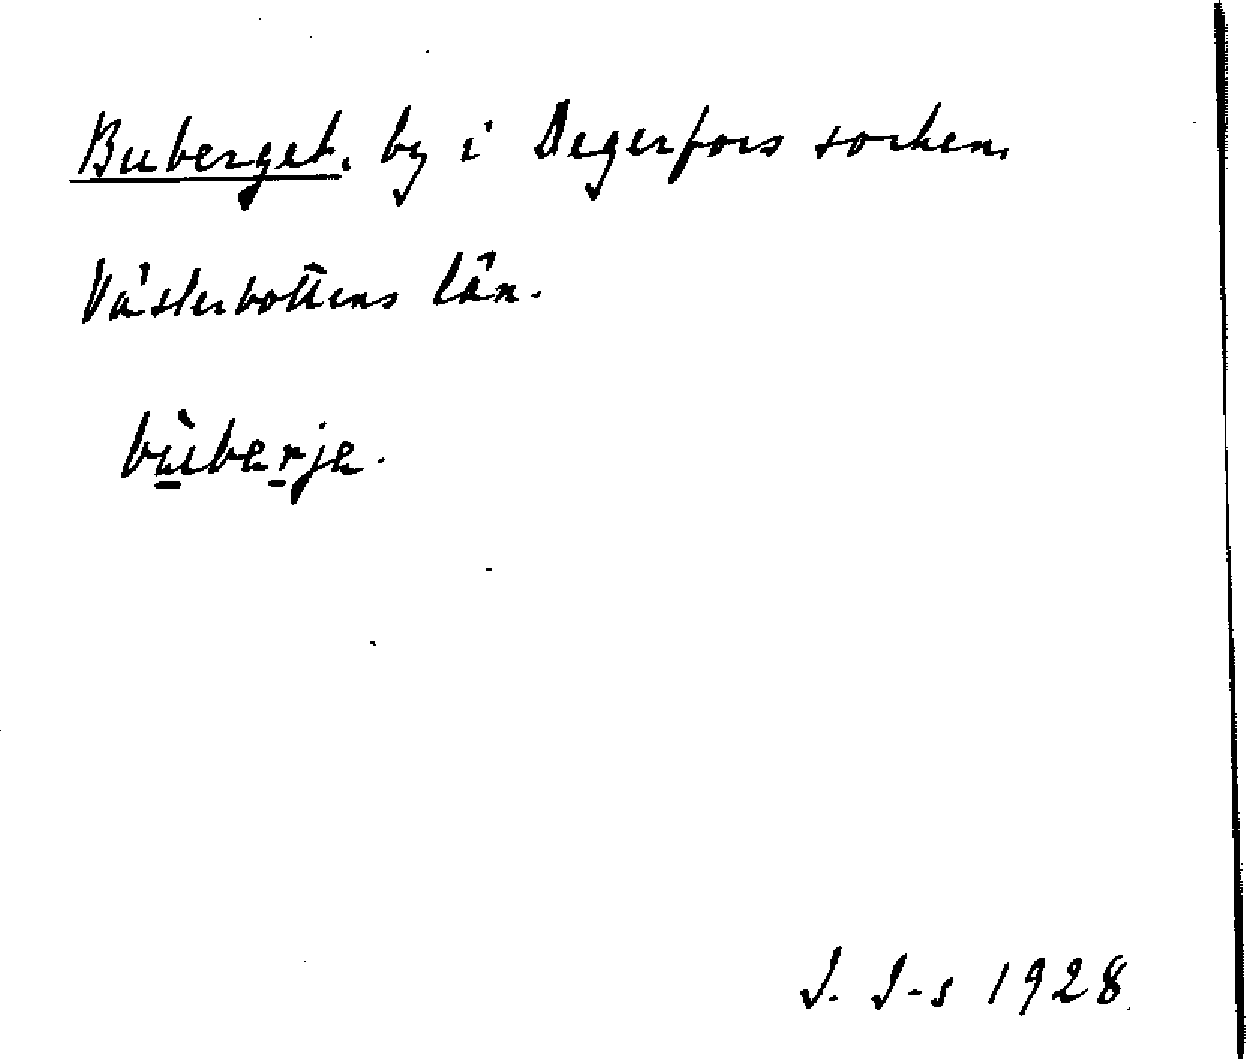 Buberget. by i Degerfors socken,
Västerbottens län.
bùberje.
J. J-s 1928